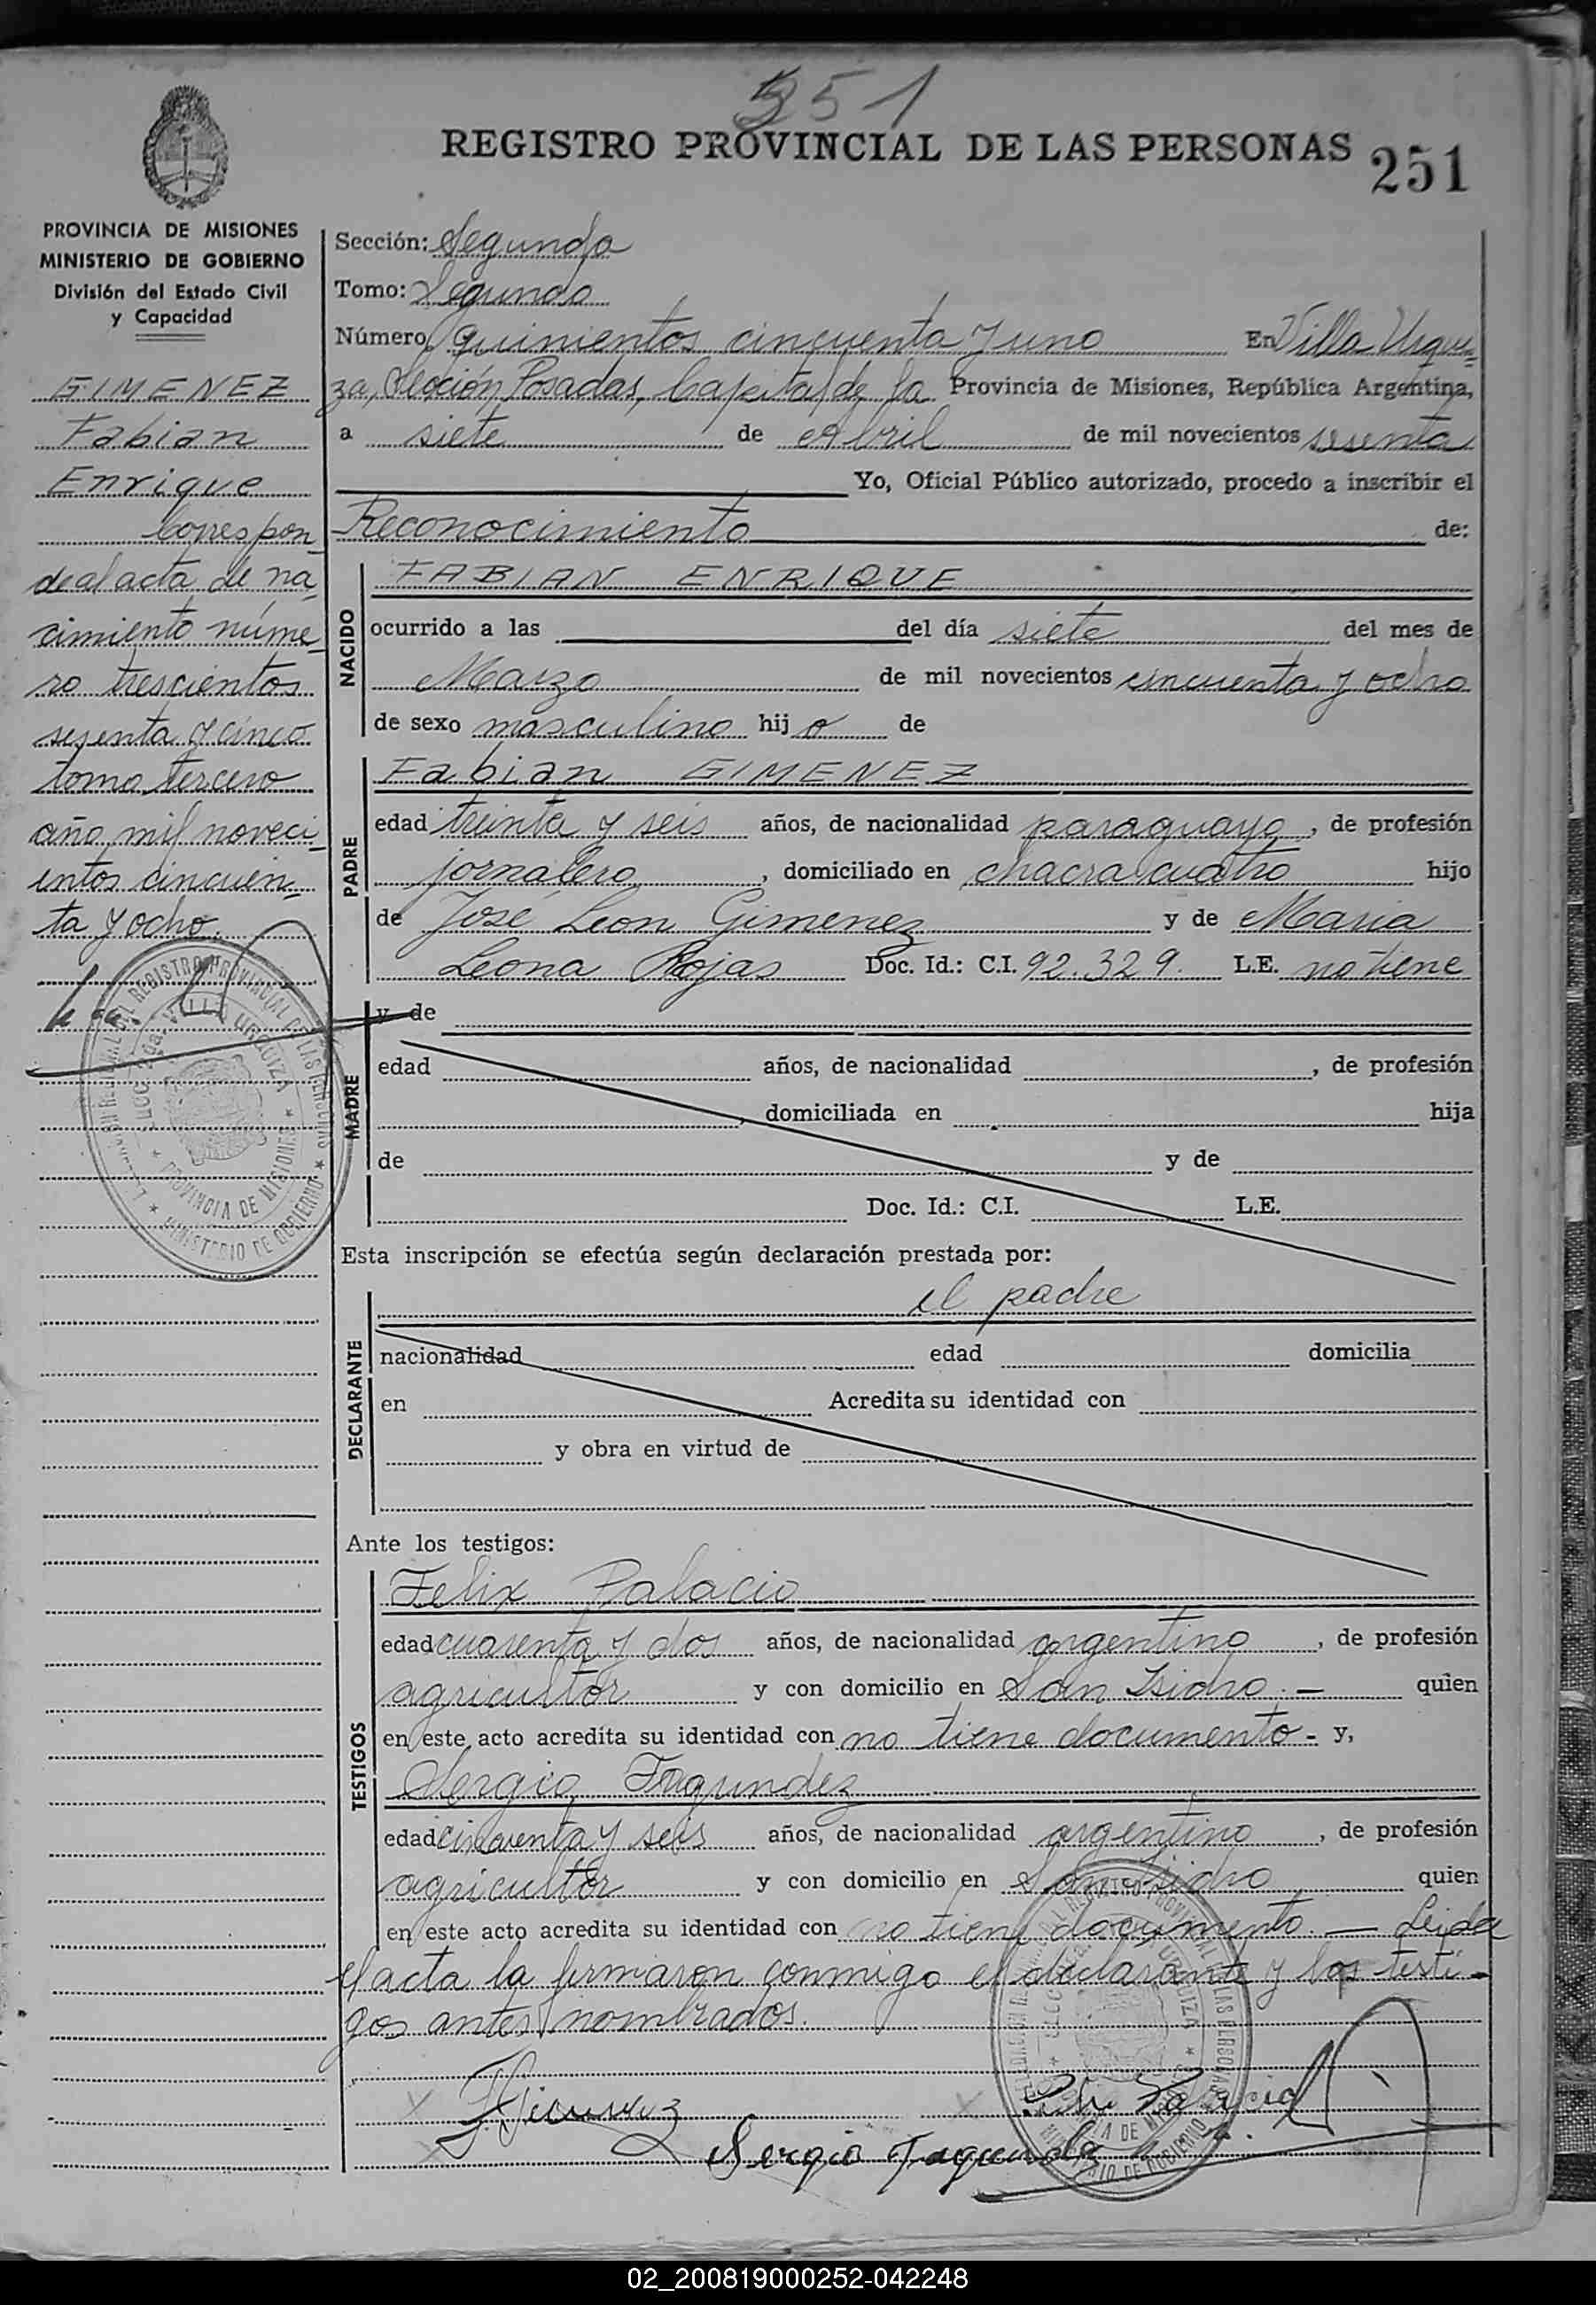 551
REGISTRO PROVINCIAL DE LAS PERSONAS 251
PROVINCIA DE MISIONES
MINISTERIO DE GOBIERNO
División del Estado Civil
y Capacidad
GIMENEZ
Fabian
Enrique
Correspon
de al acta de na
cimiento núme
ro trescientos
sesenta y cinco
tomo tercero
año mil noveci
entos cincuen
ta y ocho.
Sección: Segunda
Tomo: Segundo
Número quinientos cincuenta y uno En Villa Urqui
za, Sección Posadas, Capital de la Provincia de Misiones, República Argentina,
a siete de Abril de mil novecientos sesenta
Yo, Oficial Público autorizado, procedo a inscribir el
Reconocimiento de:
NACIDO
FABIAN ENRIQUE
ocurrido a las del día siete del mes de
Marzo de mil novecientos cincuenta y ocho
de sexo masculino hijo de
PADRE
Fabian GIMENEZ
edad treinta y seis años, de nacionalidad paraguayo, de profesión
jornalero, domiciliado en chacra cuatro hijo
de José Leon Gimenez y de Maria
Leona Rojas Doc. Id.: C.I. 92.329. L.E. no tiene
MADRE
y de
edad años, de nacionalidad , de profesión
, domiciliada en hija
de y de
Doc. Id.: C.I. L.E.
Esta inscripción se efectúa según declaración prestada por:
el padre
DECLARANTE
nacionalidad edad domicilia
en Acredita su identidad con
y obra en virtud de
Ante los testigos:
TESTIGOS
Felix Palacio
edad cuarenta y dos años, de nacionalidad argentino, de profesión
agricultor y con domicilio en San Isidro.— quien
en este acto acredita su identidad con no tiene documento - y,
Sergio Fagundez
edad cincuenta y seis años, de nacionalidad argentino, de profesión
agricultor y con domicilio en San Isidro quien
en este acto acredita su identidad con no tiene documento.— Leida
el acta la firmaron conmigo el declarante y los testi-
gos antes nombrados.
F. Gimenez
Palacio
Sergio Fagundez
DELEGACION REGIONAL DEL REGISTRO PROVINCIAL DE LAS PERSONAS
SECC. 2da. VILLA URQUIZA
PROVINCIA DE MISIONES
MINISTERIO DE GOBIERNO
02_200819000252-042248